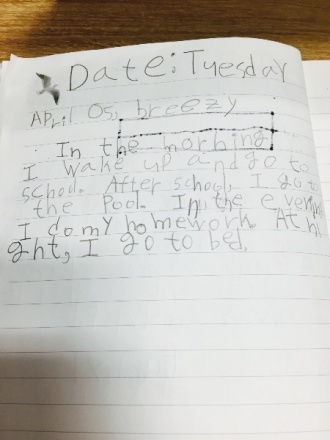 Date: Tuesday
April 05, breezy
In the morning
I wake up and go to
school. After school, I go t
the Pool. In the evening
I do my homework. At ni
ght, I go to bed.